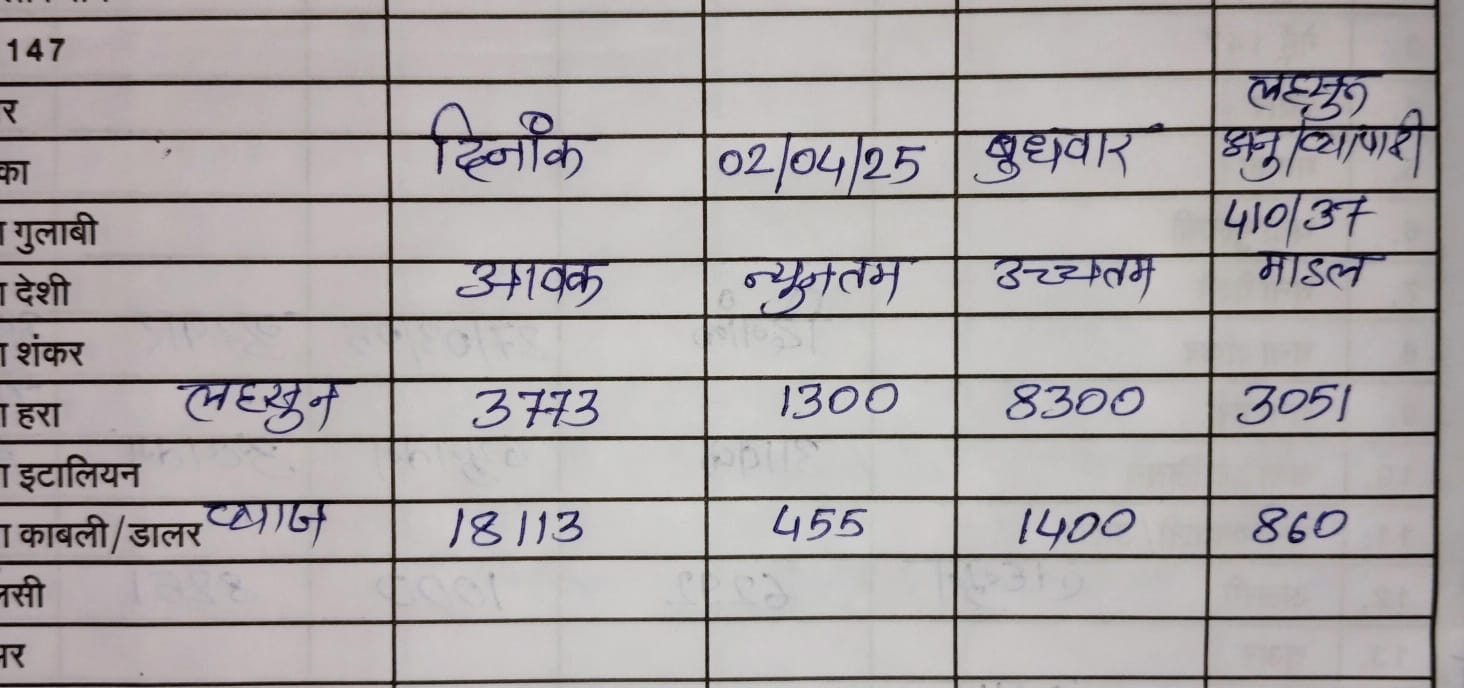 147
र
लहसुन
का दिनांक 02/04/25 बुधवार अनु/व्यापारी
गुलाबी 410/37
देशी आवक न्युनतम उच्चतम माडल
शंकर
हरा लहसुन 3773 1300 8300 3051
इटालियन
काबली/डालर प्याज 18113 455 1400 860
सी
र